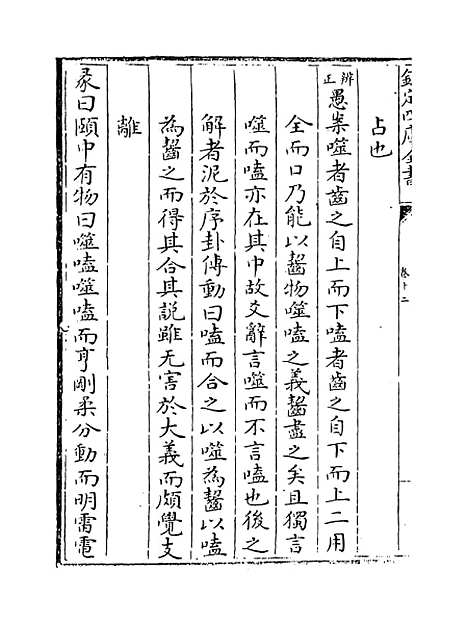 欽定四庫全書
卷十二
占也
辨正愚案噬者齒之自上而下嗑者齒之自下而上二用
全而口乃能以齧物噬嗑之義齧盡之矣且獨言
噬而嗑亦在其中故爻辭言噬而不言嗑也後之
解者泥於序卦傳動曰嗑而合之以噬為齧以嗑
為齧之而得其合其說雖无害於大義而頗覺支
離
彖曰頤中有物曰噬嗑噬嗑而亨剛柔分動而明雷電